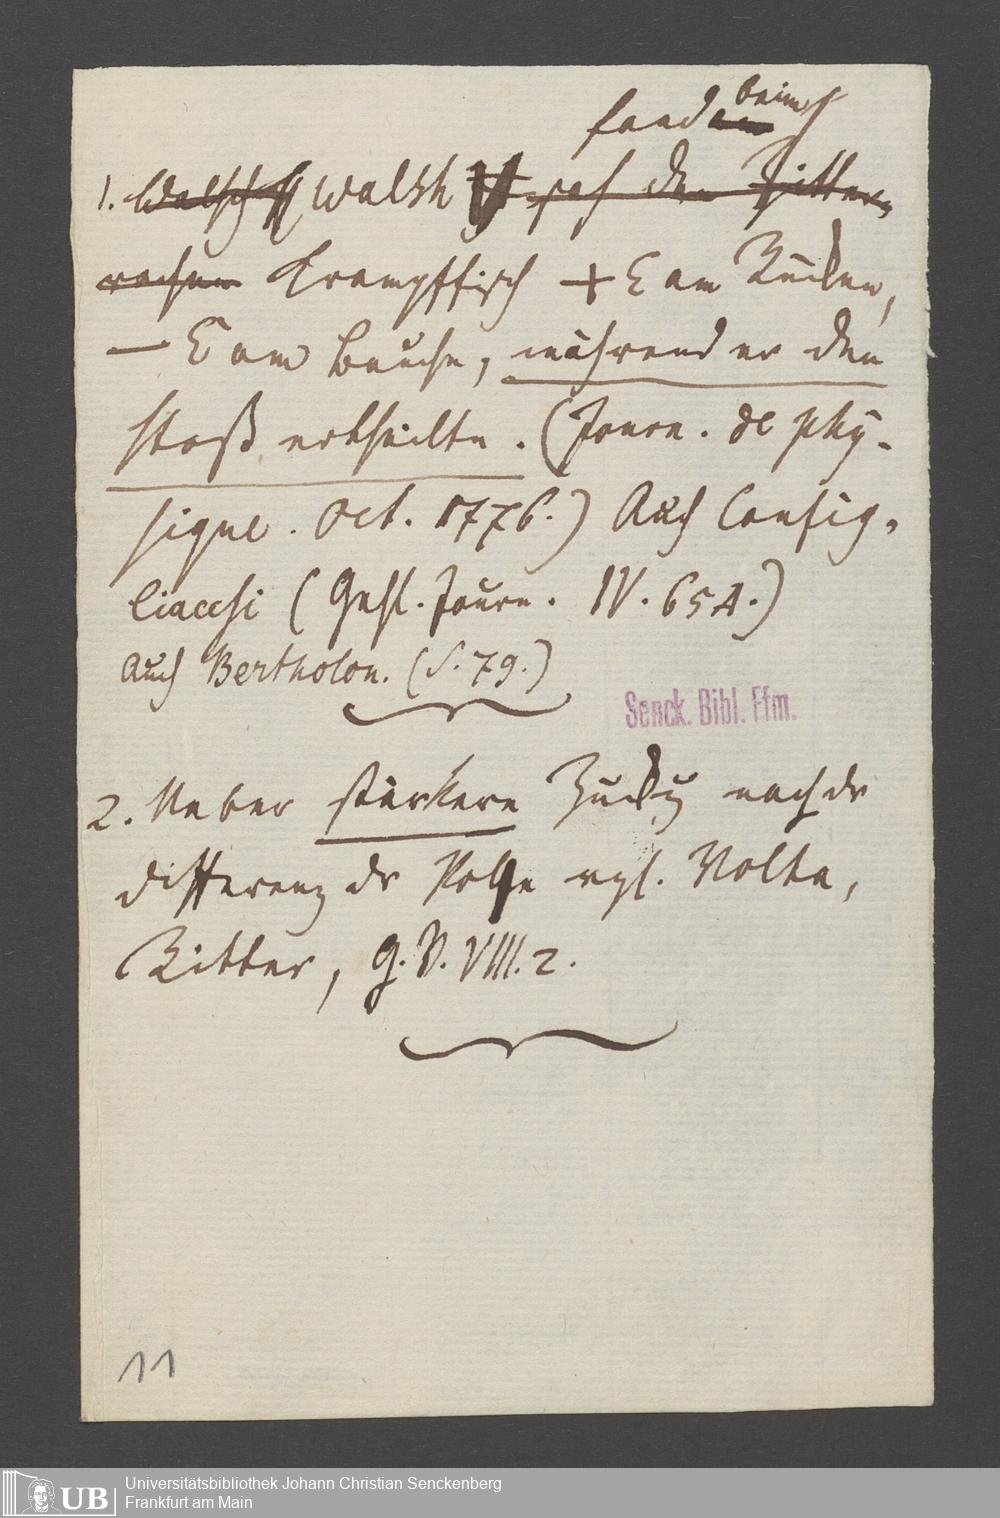 fand am beim
1. Walsch Walsh sah den Zitter-
rochen Krampffisch + E am Rücken,
— E am Bauche, während er den
Stoß ertheilte. (Journ. de phy-
sique. Oct. 1776.) Auch Config-
liacchi (Gehl. Journ. IV. 654.)
Auch Bertholon. (S. 79.)
Senck. Bibl. Ffm.
2. Ueber stärkere Zuckg nach dr
differenz dr Pole vgl. Volta,
Ritter, G. VIII. 2.
11
UB
Universitätsbibliothek Johann Christian Senckenberg
Frankfurt am Main